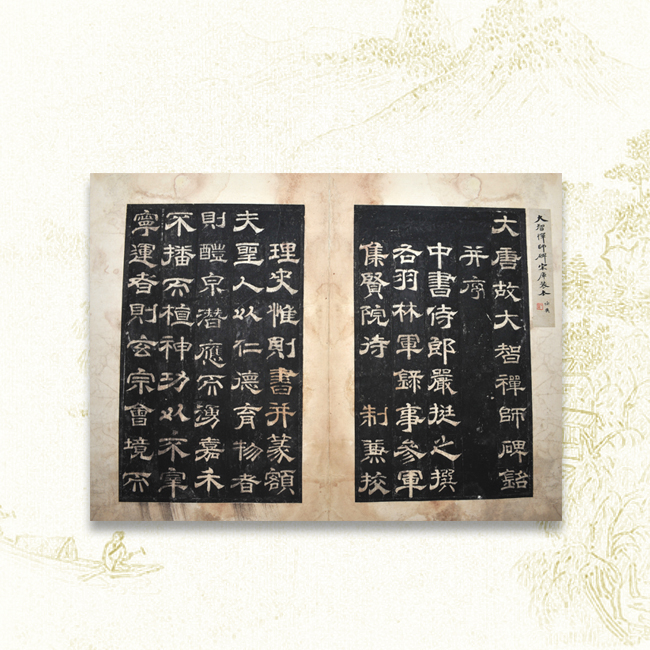 大智禪師碑
大唐故大智禪師碑銘
并序
中書侍郎嚴挺之撰
右羽林軍錄事參軍
集賢院待 制兼挍
理史惟則書并篆額
夫聖人以仁德育物者
則醴泉潛應而湧嘉禾
不播而植神功以不宰
寧運者則玄宗會境而